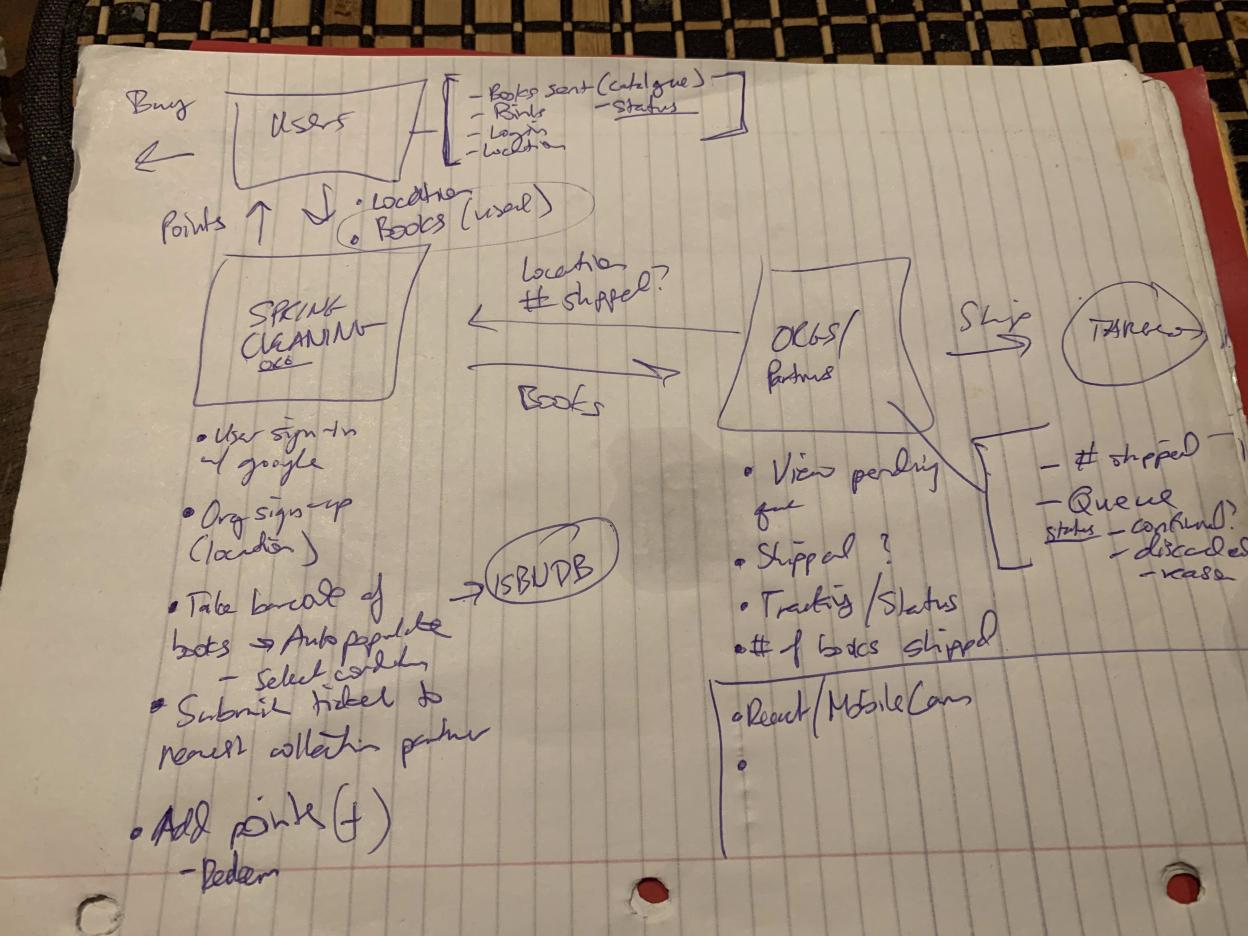 Buy
Users
- Books sent (catalogue)
- Status
- Points
- Login
- Location
Points
• Location
• Books (used)
SPRING
CLEANING
ORG
Location
# shipped?
Books
ORGS/
Partners
Ship
TARGET
• User sign-in
w/ google
• Org sign-up
(location)
• Take barcode of
books → Autopopulate
- Select condition
→ ISBNDB
• Submit ticket to
nearest collection partner
• Add points (+)
- Redeem
• View pending
que
• Shipped?
• Tracking/Status
• # of boxes shipped
- # shipped
- Queue
status - confirmed?
- discarded
- reason
• React/Mobile Cam
•